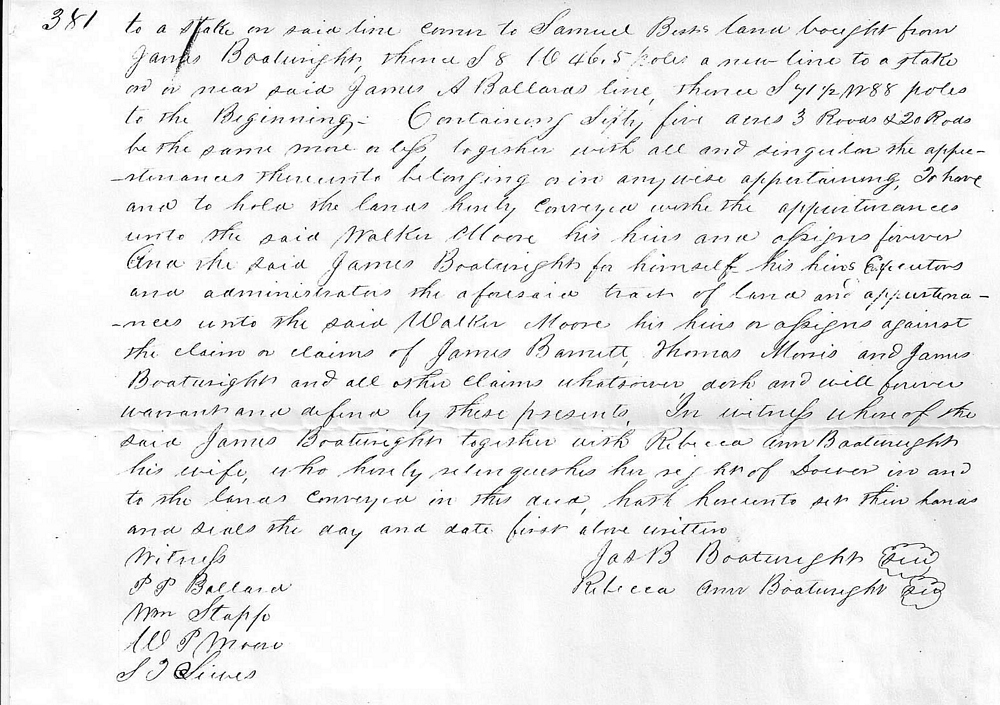 381
to a stake on said line corner to Samuel Bests land bought from
James Boatwright, thence S 8 46.5 poles a new line to a stake
on or near said James A Ballards line, thence S 71 1/2 W 88 poles
to the Beginning,- Containing Sixty five acres 3 Roods & 20 Rods
be the same more or less, together with all and singular the appe-
-rtenances thereunto belonging or in anywise appertaining, To have
and to hold the lands hereby conveyed with the appurtenances
unto the said Walker Moore his heirs and assigns forever
And the said James Boatwright for himself his heirs Executors
and administrators the aforesaid tract of land and appurtena-
-nces unto the said Walker Moore his heirs or assigns against
the claim or claims of James Barnett, Thomas Morris and James
Boatwright and all other claims whatsoever doth and will forever
warrant and defend by these presents, In witness whereof the
said James Boatwright together with Rebecca Ann Boatwright
his wife, who hereby relinquishes her right of Dower in and
to the lands conveyed in this deed, hath hereunto set their hands
and seals the day and date first above written
Witness
Jas B Boatwright seal
P P Ballard
Rebecca Ann Boatwright seal
Wm Stapp
W P Moore
S T